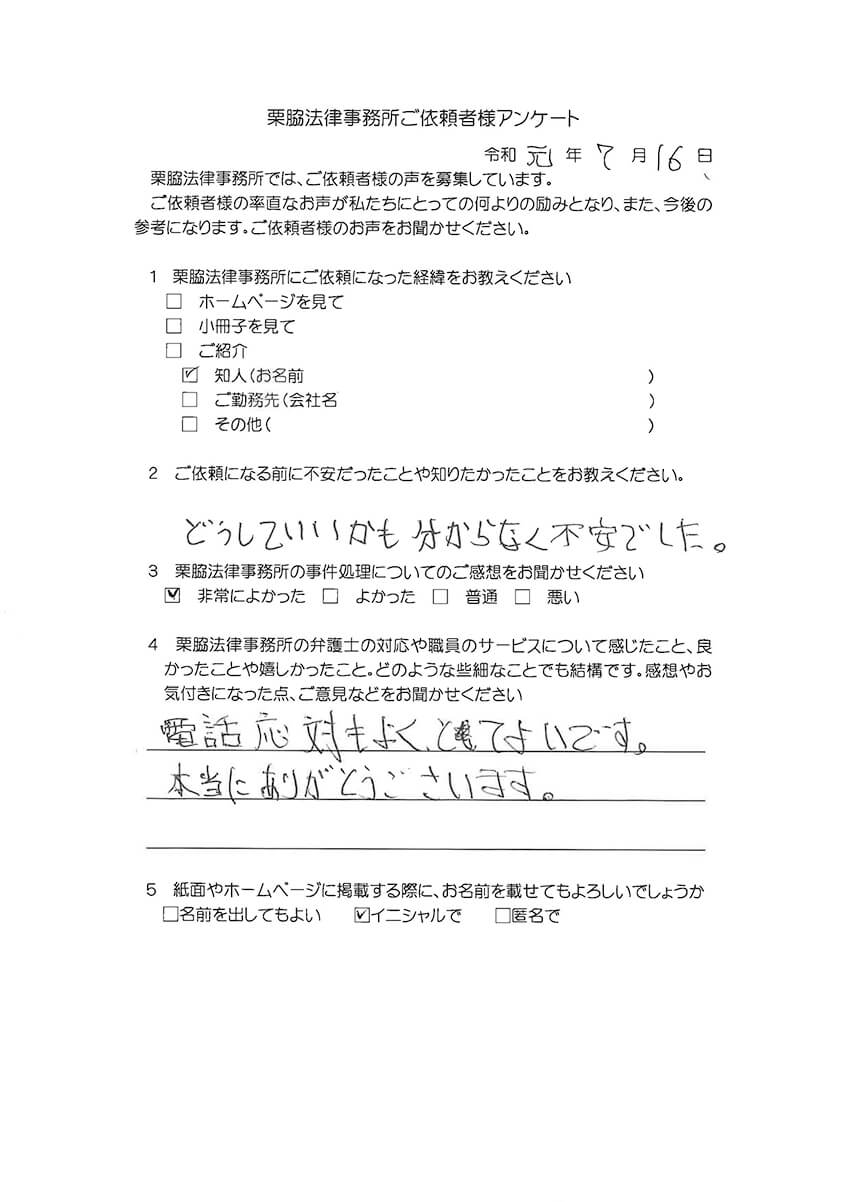 栗脇法律事務所ご依頼者様アンケート
令和 元 年 7 月 16 日
栗脇法律事務所では、ご依頼者様の声を募集しています。
ご依頼者様の率直なお声が私たちにとっての何よりの励みとなり、また、今後の
参考になります。ご依頼者様のお声をお聞かせください。
1 栗脇法律事務所にご依頼になった経緯をお教えください
□ ホームページを見て
□ 小冊子を見て
□ ご紹介
☑ 知人(お名前 )
□ ご勤務先(会社名 )
□ その他( )
2 ご依頼になる前に不安だったことや知りたかったことをお教えください。
どうしていいかも分からなく不安でした。
3 栗脇法律事務所の事件処理についてのご感想をお聞かせください
☑ 非常によかった □ よかった □ 普通 □ 悪い
4 栗脇法律事務所の弁護士の対応や職員のサービスについて感じたこと、良
かったことや嬉しかったこと。どのような些細なことでも結構です。感想やお
気付きになった点、ご意見などをお聞かせください
電話応対もよく、とてもよいです。
本当にありがとうございます。
5 紙面やホームページに掲載する際に、お名前を載せてもよろしいでしょうか
□名前を出してもよい ☑イニシャルで □匿名で